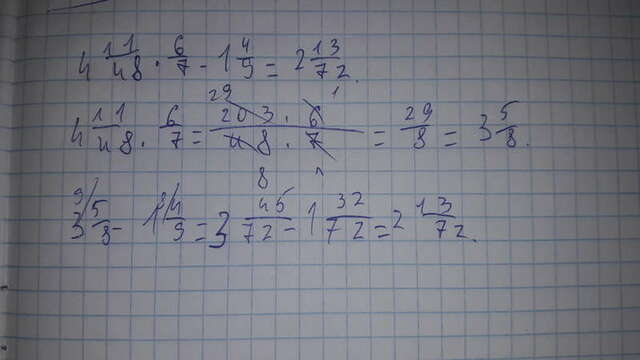 4 11/48 · 6/7 - 1 4/9 = 2 13/72.
4 11/48 · 6/7 = 203 · 6 / 48 · 7 = 29/8 = 3 5/8.
3 5/8 - 1 4/9 = 3 45/72 - 1 32/72 = 2 13/72.